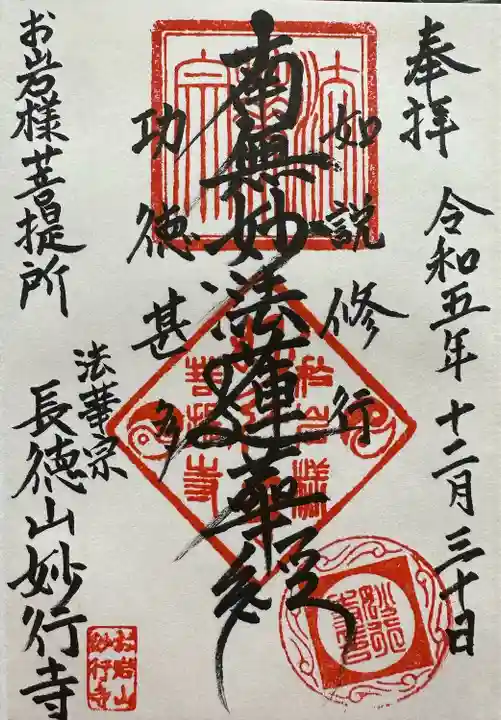 奉拝
令和五年十二月三十日
如説修行
南無妙法蓮華経
功徳甚多
お岩様菩提所
法華宗
長徳山妙行寺
お岩山
妙行寺